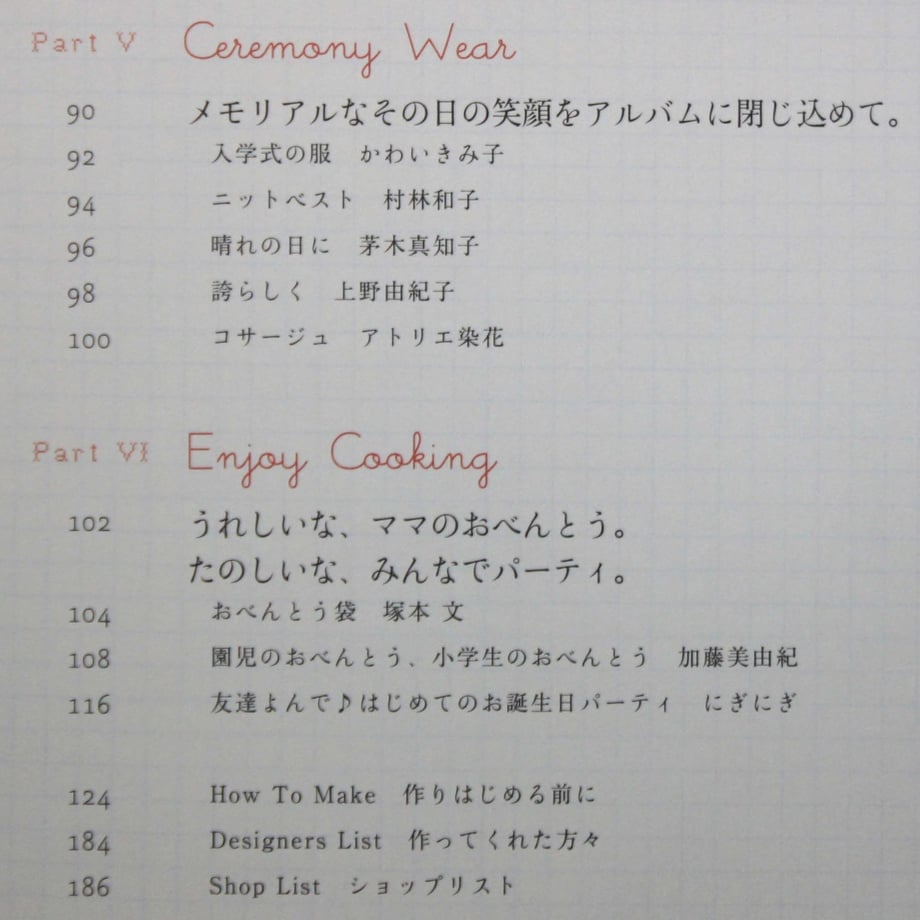 Part V Ceremony Wear
90 メモリアルなその日の笑顔をアルバムに閉じ込めて。
92 入学式の服　かわいきみ子
94 ニットベスト　村林和子
96 晴れの日に　茅木真知子
98 誇らしく　上野由紀子
100 コサージュ　アトリエ染花
Part VI Enjoy Cooking
102 うれしいな、ママのおべんとう。
たのしいな、みんなでパーティ。
104 おべんとう袋　塚本 文
108 園児のおべんとう、小学生のおべんとう　加藤美由紀
116 友達よんで♪はじめてのお誕生日パーティ　にぎにぎ
124 How To Make　作りはじめる前に
184 Designers List　作ってくれた方々
186 Shop List　ショップリスト